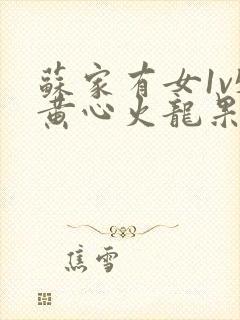 蘇家有女1v
黄心火龍果
焦雪